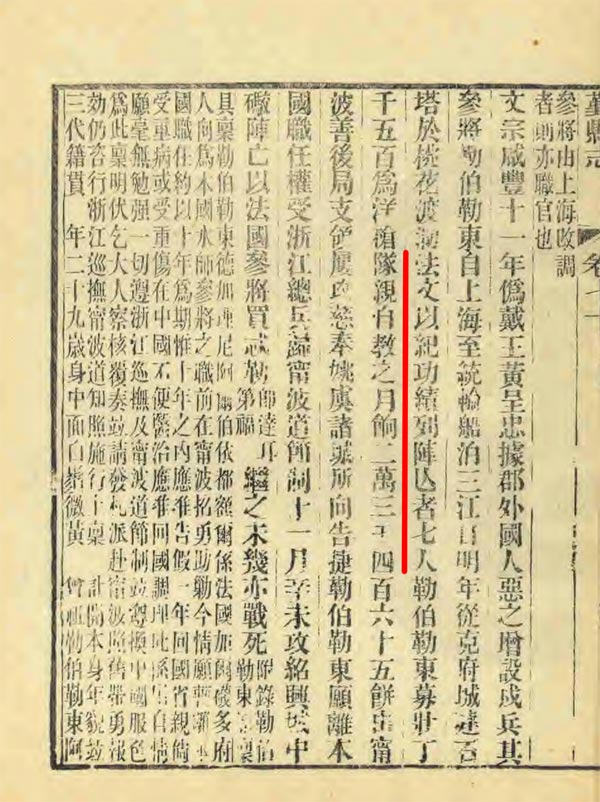 鄞縣志 卷七十
參將由上海改調
者則亦職官也
文宗咸豐十一年僞戴王黃呈忠據郡外國人惡之增設戍兵其
參將勒伯勒東自上海至統輪船泊三江口明年從克府城建石
塔於桃花渡刻法文以紀功績列陣亡者七人勒伯勒東募壯丁
千五百爲洋槍隊親自教之月餉二萬三千四百六十五餅由甯
波善後局支領屢攻慈奉姚虞諸城所向告捷勒伯勒東願離本
國職任權受浙江總兵歸甯波道節制十一月辛未攻紹興城中
礮陣亡以法國參將買忒勒師達耳第福繼之未幾亦戰死附錄勒伯勒東稟
具稟勒伯勒東德加理尼阿爾伯依都額爾係法國加爾磯多府
人向爲本國水師參將之職前在甯波招勇助勦今情願暫離本
國職任約以十年爲期惟十年之內應准告假一年回國省親倘
受重病或受重傷在中國不便醫治應准回國調理此係出自情
願毫無勉强一切遵浙江巡撫及甯波道節制並遵換中國服色
爲此稟明伏乞大人察核獨奏並請發札派赴甯波照舊帶勇報
効仍咨行浙江巡撫甯波道知照施行上稟 計開本身年貌並
三代籍貫 年二十九歲身中面白鬚微黃 曾祖勒伯勒東阿